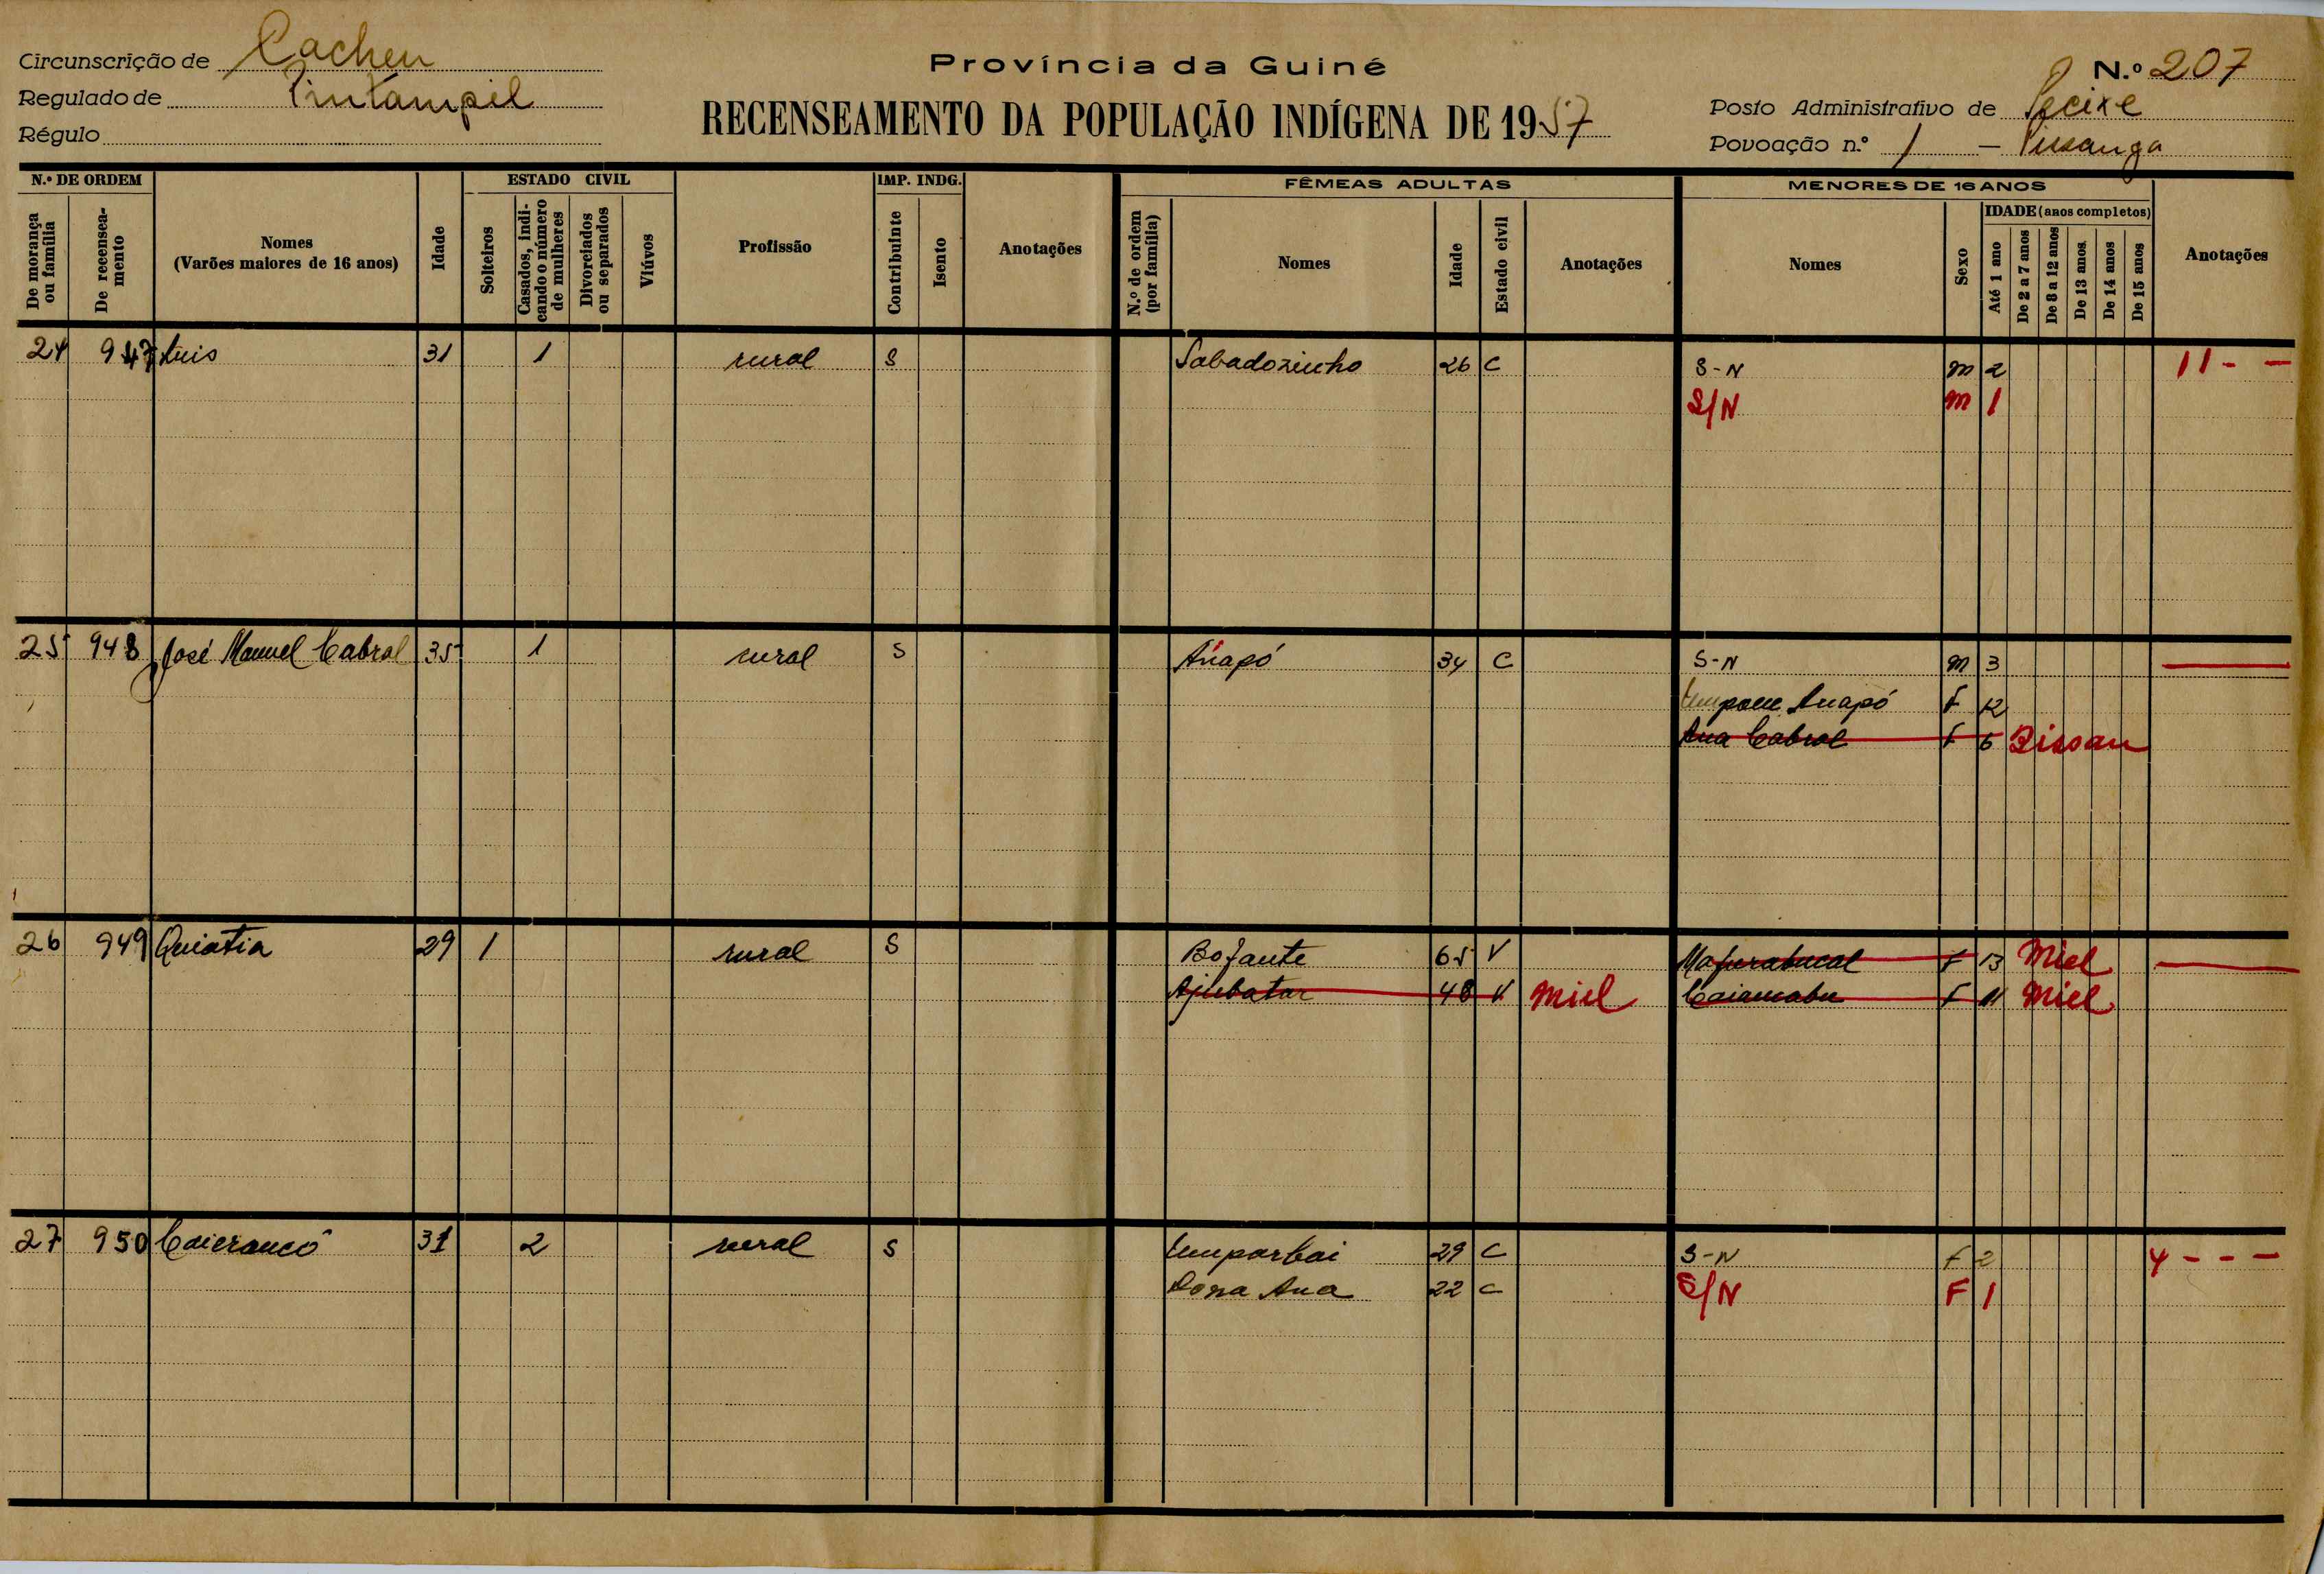 Circunscrição de Cacheu
Regulado de Pintampil
Régulo
Província da Guiné
RECENSEAMENTO DA POPULAÇÃO INDÍGENA DE 1957
N.º 207
Posto Administrativo de Pecixe
Povoação n.º 1 —
N.º DE ORDEM
De morança ou família
De recenseamento
Nomes
(Varões maiores de 16 anos)
Idade
ESTADO CIVIL
Solteiros
Casados, indicando o número de mulheres
Divorciados ou separados
Viúvos
Profissão
IMP. INDG.
Contribuinte
Isento
Anotações
FÊMEAS ADULTAS
N.º de ordem (por família)
Nomes
Idade
Estado civil
Anotações
MENORES DE 16 ANOS
Nomes
Sexo
IDADE (anos completos)
Até 1 ano
De 2 a 7 anos
De 8 a 12 anos
De 13 anos
De 14 anos
De 15 anos
Anotações
24 947 Luis 31 1 rural S Sabadozinho 26 C S-N M 2 11 - -
S/N M 1
25 948 José Manuel Cabral 35 1 rural S Anapó 34 C S-N M 3
Anapó F 12
Ana Cabral F 6 Bissau
26 949 Quiatia 29 1 rural S Bofante 65 V F 13 Miel
Ajubatar 48 V Miel F 11 Miel
27 950 31 2 rural S 29 C S-N F 2 4 - - -
Dona Ana 22 C S/N F 1